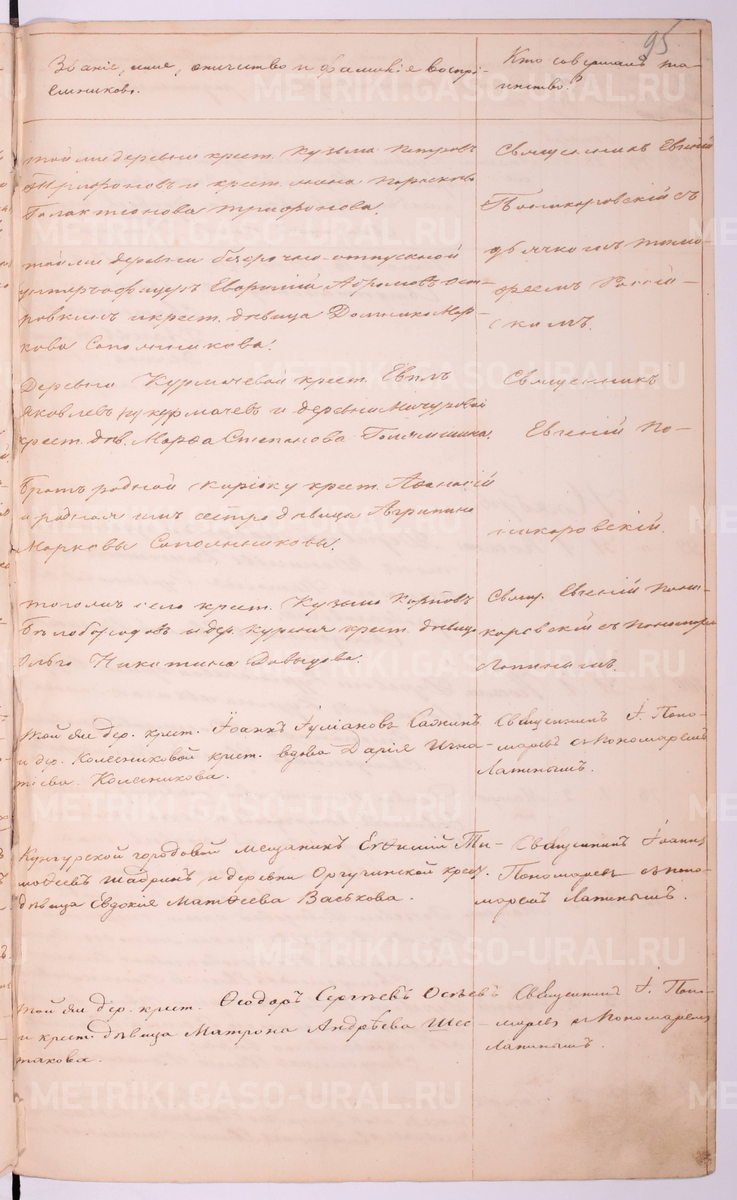 95
Званіе, имя, отчество и фамилія воспрі-
емниковъ.
Кто совершалъ та-
инство?
той же деревни крест. Кузьма Петровъ
Трифоновъ и крест. жена Парасковья
Галактіонова Трифонова.
Священникъ Евгеній
Поникаровскій съ
дьячкомъ Тимо-
феемъ
скимъ.
той же деревни безсрочно-отпускной
унтеръ-офицеръ Евфимій Абрамовъ Ост-
ровкинъ и крест. дѣвица Домника Мар-
кова Сапожникова.
Деревни Курмачевой крест. Евплъ
Яковлевъ Курмачевъ и деревни Мичуровой
крест. дѣв. Марфа Степанова
Священникъ
Евгеній По-
никаровскій.
Братъ родной Кирику крест. Афанасій
и родная имъ сестра дѣвица Агрипина
Марковы Сапожниковы.
того же села крест. Кузьма Карповъ
Бѣлобородовъ и дер. Курсія крест. дѣвица
Ольга Никитина Давыдова.
Свящ. Евгеній Пони-
каровскій съ пономаремъ
Лапинымъ.
Той же дер. крест. Іоаннъ Іуліановъ Сажинъ
и дер. Колесниковой крест. вдова Дарія Игна-
тіева Колесникова.
Священникъ І. Поно-
маревъ съ Пономаремъ
Лапинымъ.
Кунгурской городовой мещанинъ Евѳимій Ти-
моѳеевъ Шадринъ и деревни Оргучинской крест.
дѣвица Евдокія Матѳеева Васькова.
Священникъ Іоаннъ
Пономаревъ съ поно-
маремъ Лапинымъ.
той же дер. крест. Ѳеодоръ Сергѣевъ Осѣевъ
и крест. дѣвица Матрона Андрѣева Шес-
такова.
Священникъ І. Поно-
маревъ съ Пономаремъ
Лапинымъ.
METRIKI.GASO-URAL.RU